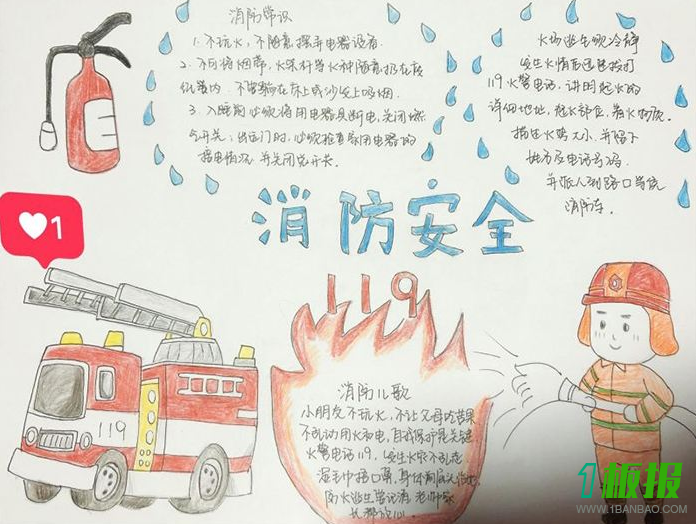 消防常识
1. 不玩火，不随意摆弄电器设备
2. 不可将烟蒂，火柴杆等火种随意扔在废
纸篓内，不要躺在床上或沙发上吸烟.
3. 入睡前必须将用电器具断电，关闭燃
气开关；出远门时，必须检查家用电器的
插电情况并关闭总开关.
火场逃生须冷静
发生火情迅速拨打
119火警电话，讲明起火的
详细地址，起火部位，着火物质，
大小，并留下
地方及电话号码，
并派人到路口
消防车.
消防安全
1
119
119
消防儿歌
小朋友不玩火，不让父母吃苦果
不乱动用火和电，自我保护是关键
火警电话119，发生火灾不乱走
湿毛巾捂口鼻，身体前屈
1板报
WWW.1BANBAO.COM